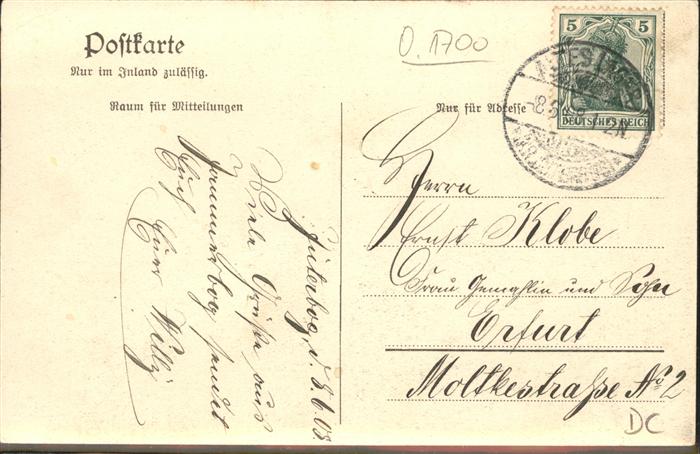 Postkarte
Nur im Inland zulässig.
Raum für Mitteilungen
Nur für Adresse
O.1700
5 5
DEUTSCHES REICH
Jüterbog, d. 8.6.08
Viele Grüße aus
sendet
Euch
Euer Willy
Herrn
Ernst Klobe
Frau Gemahlin und Sohn
Erfurt
Moltkestraße No 2
DC